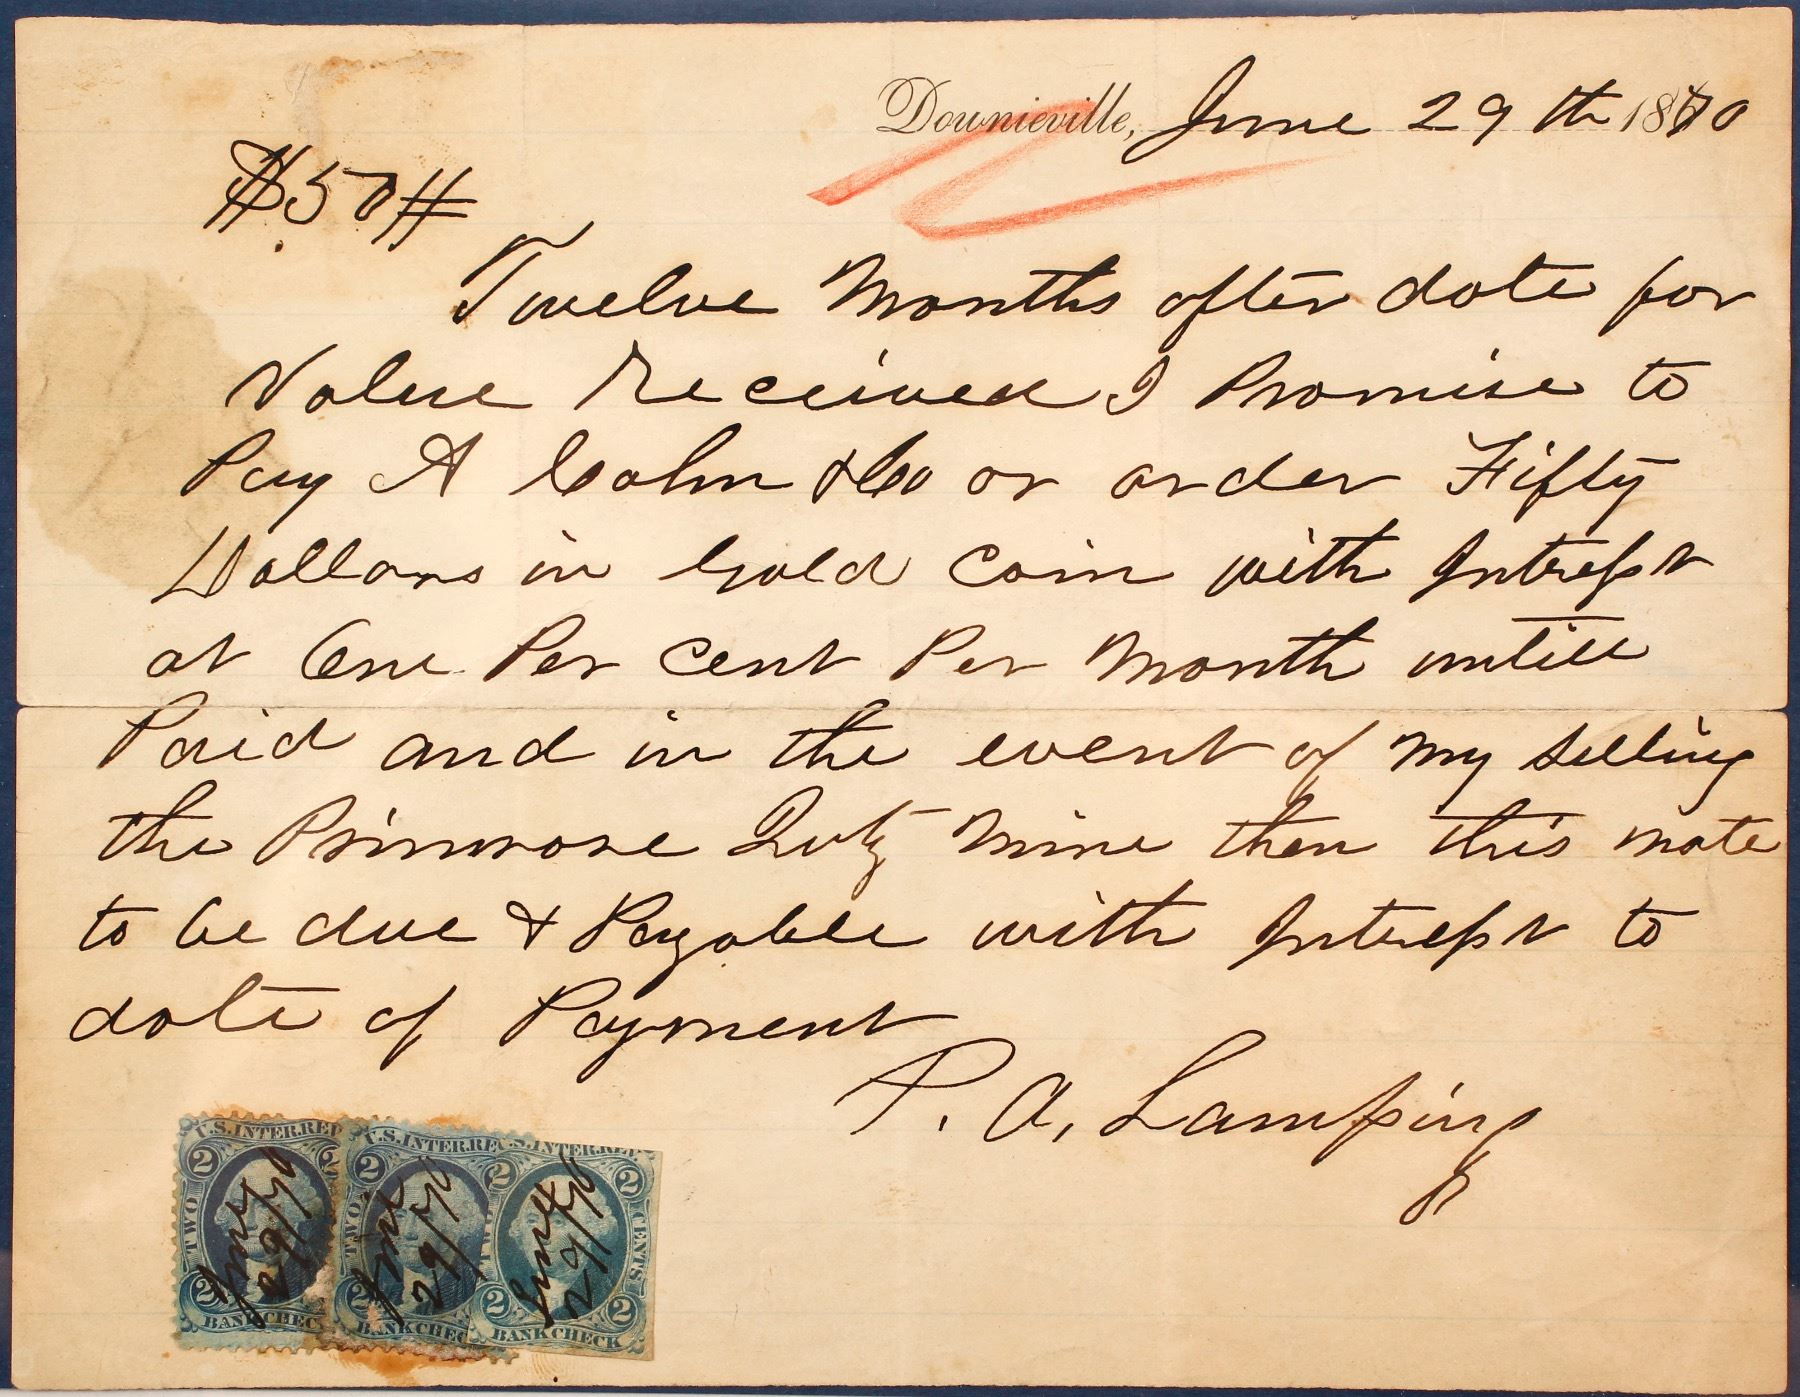 Downieville, June 29th 1870
$50#
Twelve Months after date for
Value Received I Promise to
Pay A Cohn & Co or order Fifty
Dollars in Gold Coin with Intrest
at One Per Cent Per Month untill
Paid and in the event of my selling
the Primrose Qutz Mine then this note
to be due & Payable with Intrest to
date of Payment
P. A. Lamping
U.S. INTER. REV
2 2
TWO
June 29/70
2
BANK CHEC
U.S. INTER. RE
2
TWO
June 29/70
2
BANK CHEC
.S. INTER. REV
2 2
TWO CENTS
June 29/70
2 2
BANK CHECK